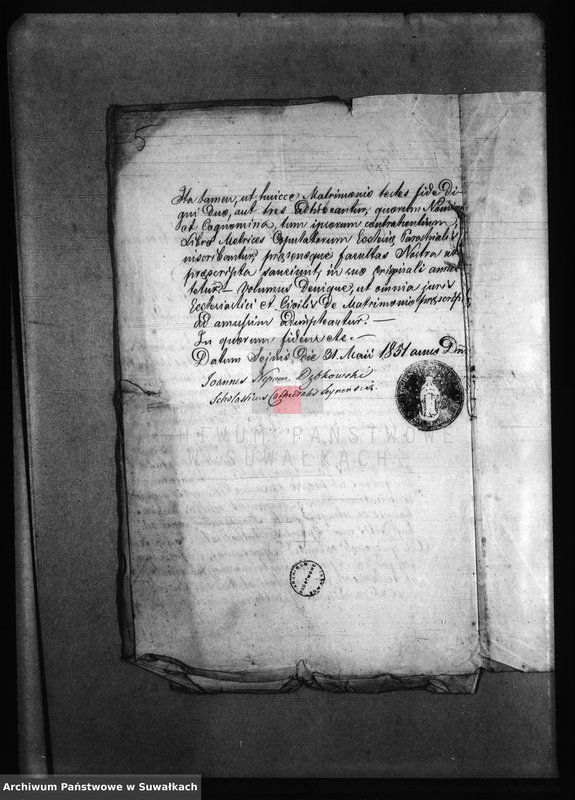 Ita tamen, ut huicce Matrimonio testes fide di-
gni duo, aut tres adhibeantur, quorum Nomina
et Cognomina, tum ipsorum contrahentium,
Libro Metrices Copulatorum Ecclesiæ Parochialis
inscribantur, præsensque facultas Nostra ut
præscripta sanciunt, in suo originali anno-
tetur. – Volumus Denique, ut omnia juris
Ecclesiastici et Civilis De Matrimonio præscripta
ad amussim adimpleantur. –
In quorum fidem etc. –
Datum Sejnis Die 31. Maii 1851 anno Dni
Joannes Nepom. Dąbkowski
Scholasticus Cathedralis Seynensis.
ARCHIWUM PAŃSTWOWE
W SUWAŁKACH
Archiwum Państwowe w Suwałkach